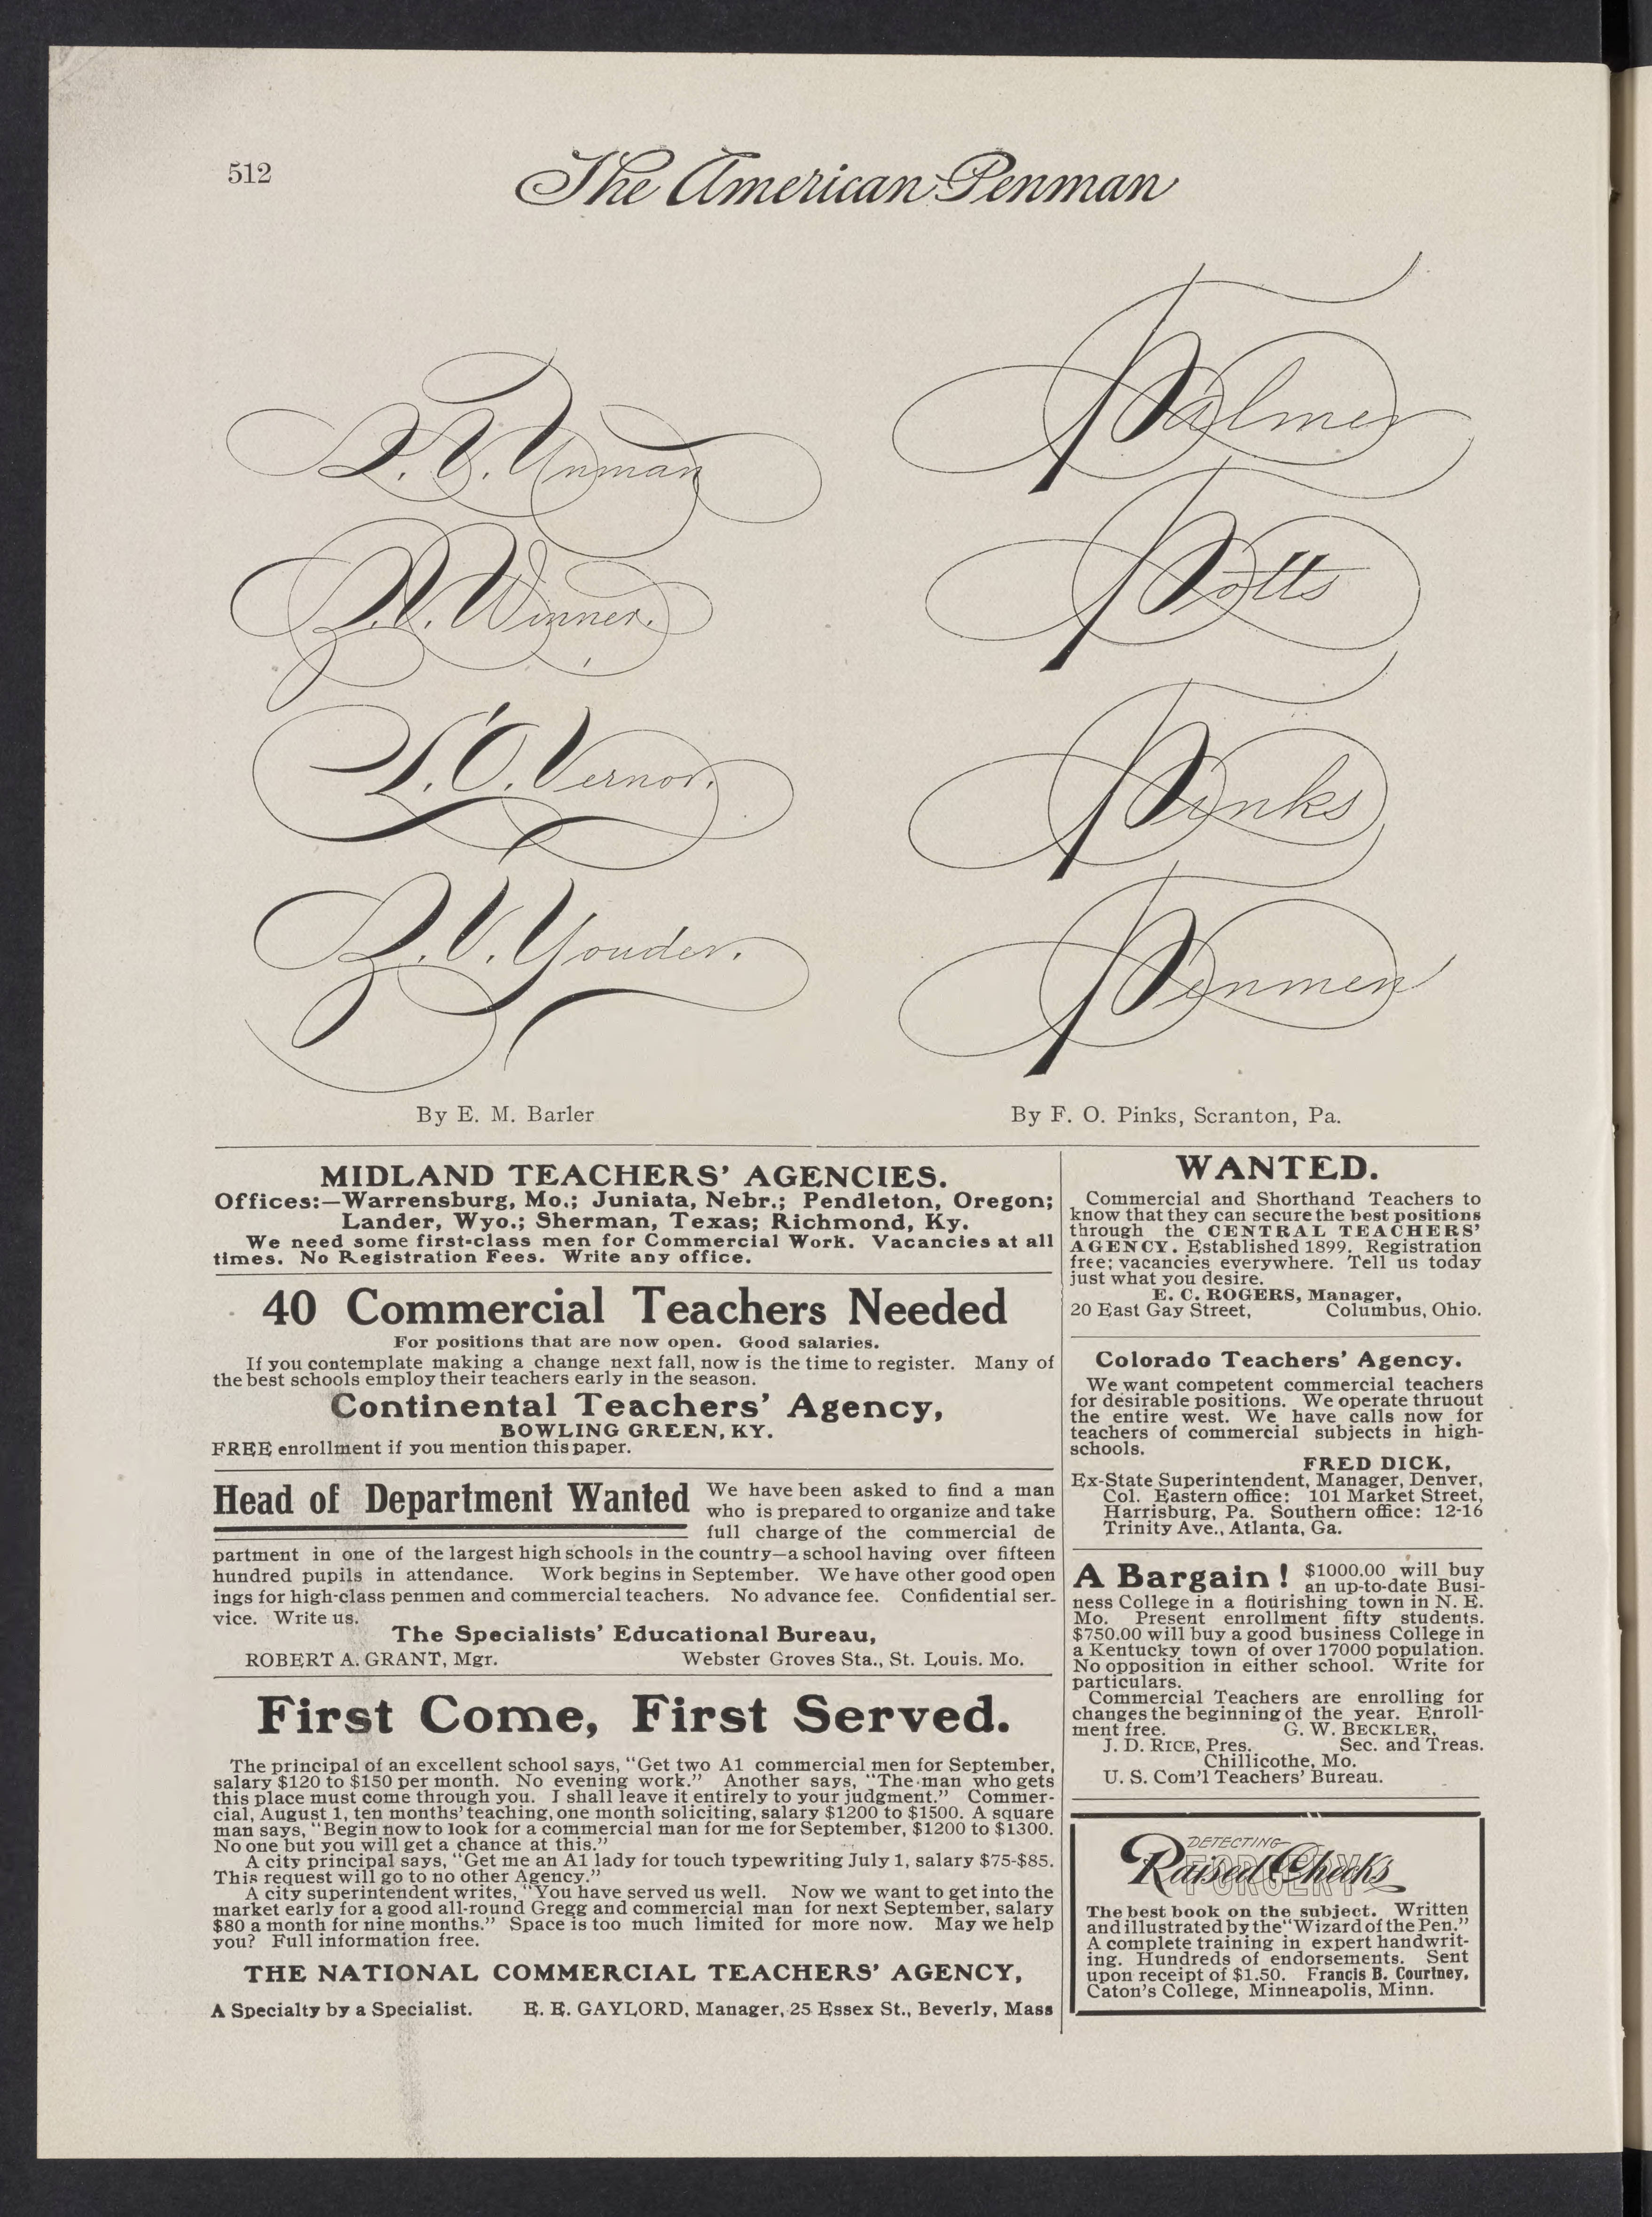 512
The American Penman
D. V. Unman
D. V. Winner.
L. O. Vernor.
D. V. Youder.
By E. M. Barler
Palmer
Potts
Pinks
Penmen
By F. O. Pinks, Scranton, Pa.
MIDLAND TEACHERS' AGENCIES.
Offices:—Warrensburg, Mo.; Juniata, Nebr.; Pendleton, Oregon;
Lander, Wyo.; Sherman, Texas; Richmond, Ky.
We need some first-class men for Commercial Work. Vacancies at all
times. No Registration Fees. Write any office.
40 Commercial Teachers Needed
For positions that are now open. Good salaries.
If you contemplate making a change next fall, now is the time to register. Many of
the best schools employ their teachers early in the season.
Continental Teachers' Agency,
BOWLING GREEN, KY.
FREE enrollment if you mention this paper.
Head of Department Wanted
We have been asked to find a man
who is prepared to organize and take
full charge of the commercial de
partment in one of the largest high schools in the country—a school having over fifteen
hundred pupils in attendance. Work begins in September. We have other good open
ings for high-class penmen and commercial teachers. No advance fee. Confidential ser-
vice. Write us.
The Specialists' Educational Bureau,
ROBERT A. GRANT, Mgr. Webster Groves Sta., St. Louis. Mo.
First Come, First Served.
The principal of an excellent school says, "Get two A1 commercial men for September,
salary $120 to $150 per month. No evening work." Another says, "The man who gets
this place must come through you. I shall leave it entirely to your judgment." Commer-
cial, August 1, ten months' teaching, one month soliciting, salary $1200 to $1500. A square
man says, "Begin now to look for a commercial man for me for September, $1200 to $1300.
No one but you will get a chance at this."
A city principal says, "Get me an A1 lady for touch typewriting July 1, salary $75-$85.
This request will go to no other Agency."
A city superintendent writes, "You have served us well. Now we want to get into the
market early for a good all-round Gregg and commercial man for next September, salary
$80 a month for nine months." Space is too much limited for more now. May we help
you? Full information free.
THE NATIONAL COMMERCIAL TEACHERS' AGENCY,
A Specialty by a Specialist. E. E. GAYLORD, Manager, 25 Essex St., Beverly, Mass
WANTED.
Commercial and Shorthand Teachers to
know that they can secure the best positions
through the CENTRAL TEACHERS'
AGENCY. Established 1899. Registration
free; vacancies everywhere. Tell us today
just what you desire.
E. C. ROGERS, Manager,
20 East Gay Street, Columbus, Ohio.
Colorado Teachers' Agency.
We want competent commercial teachers
for desirable positions. We operate thruout
the entire west. We have calls now for
teachers of commercial subjects in high-
schools.
FRED DICK,
Ex-State Superintendent, Manager, Denver,
Col. Eastern office: 101 Market Street,
Harrisburg, Pa. Southern office: 12-16
Trinity Ave., Atlanta, Ga.
A Bargain! $1000.00 will buy
an up-to-date Busi-
ness College in a flourishing town in N. E.
Mo. Present enrollment fifty students.
$750.00 will buy a good business College in
a Kentucky town of over 17000 population.
No opposition in either school. Write for
particulars.
Commercial Teachers are enrolling for
changes the beginning of the year. Enroll-
ment free. G. W. BECKLER,
J. D. RICE, Pres. Sec. and Treas.
Chillicothe, Mo.
U. S. Com'l Teachers' Bureau.
DETECTING
Raised Checks
FORGERY
The best book on the subject. Written
and illustrated by the "Wizard of the Pen."
A complete training in expert handwrit-
ing. Hundreds of endorsements. Sent
upon receipt of $1.50. Francis B. Courtney,
Caton's College, Minneapolis, Minn.